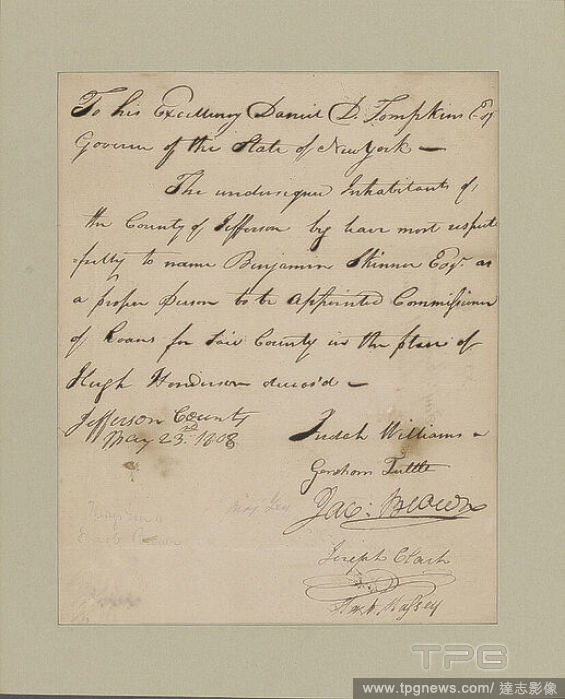 To his Excellency Daniel D. Tompkins Esqr
Governor of the State of New York —
The undersigned Inhabitants of
the County of Jefferson beg leave most respect
=fully to name Benjamin Skinner Esqr. as
a proper person to be appointed Commissioner
of Loans for said County in the place of
Hugh Henderson deceas'd —
Jefferson County
May 23rd 1808
Judah Williams
Gershom Tuttle
Jac: Brown
Joseph Clark
Hart Massey
Maj Gen
TPG
www.tpgnews.com/達志影像